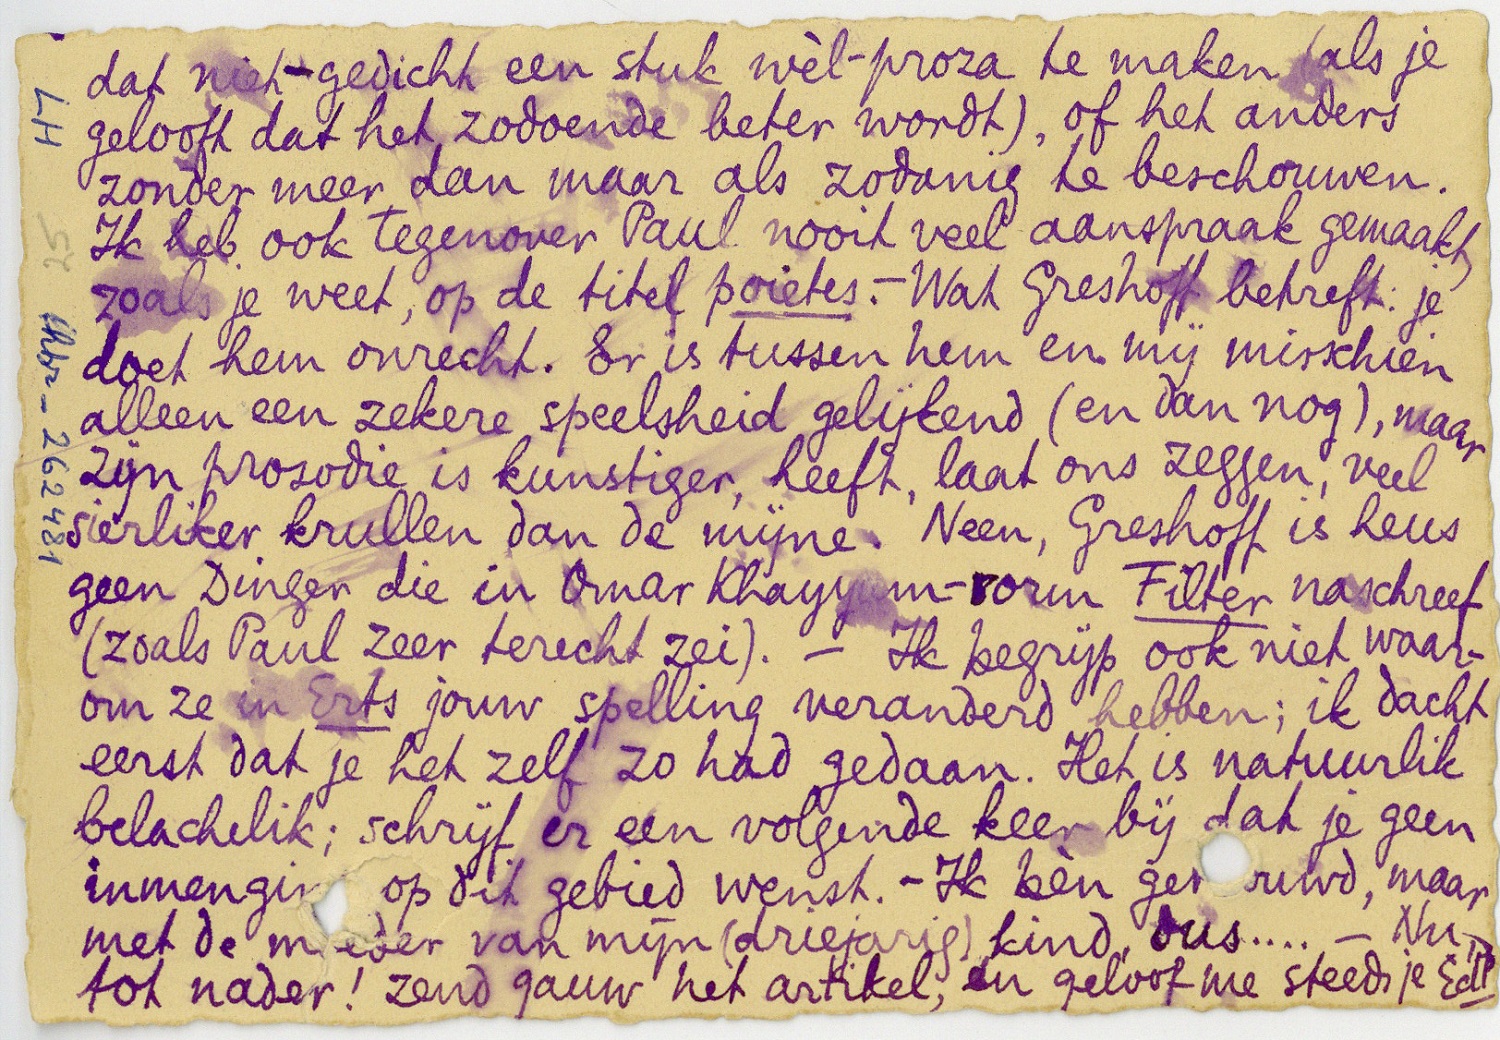 dat niet-gedicht een stuk wèl-proza te maken (als je
gelooft dat het zodoende beter wordt), of het anders
zonder meer dan maar als zodanig te beschouwen.
Ik heb ook tegenover Paul nooit veel aanspraak gemaakt,
zoals je weet, op de titel poiètes. — Wat Greshoff betreft: je
doet hem onrecht. Er is tussen hem en mij misschien
alleen een zekere speelsheid gelijkend (en dan nog), maar
zijn prosodie is kunstiger, heeft, laat ons zeggen, veel
sierliker krullen dan de mijne. Neen, Greshoff is heus
geen Dinger die in Omar Khayyam-vorm Filter naschreef
(zoals Paul zeer terecht zei). — Ik begrijp ook niet waar-
om ze in Erts jouw spelling veranderd hebben; ik dacht
eerst dat je het zelf zo had gedaan. Het is natuurlik
belachelik; schrijf er een volgende keer bij dat je geen
inmengin op dit gebied wenst. — Ik bèn ge ouwd, maar
met de m eder van mijn (driejarig) kind, dus.... — Nu,
tot nader! Zend gauw het artikel, en geloof me steeds je EdP
LH
52
thbr - 262481